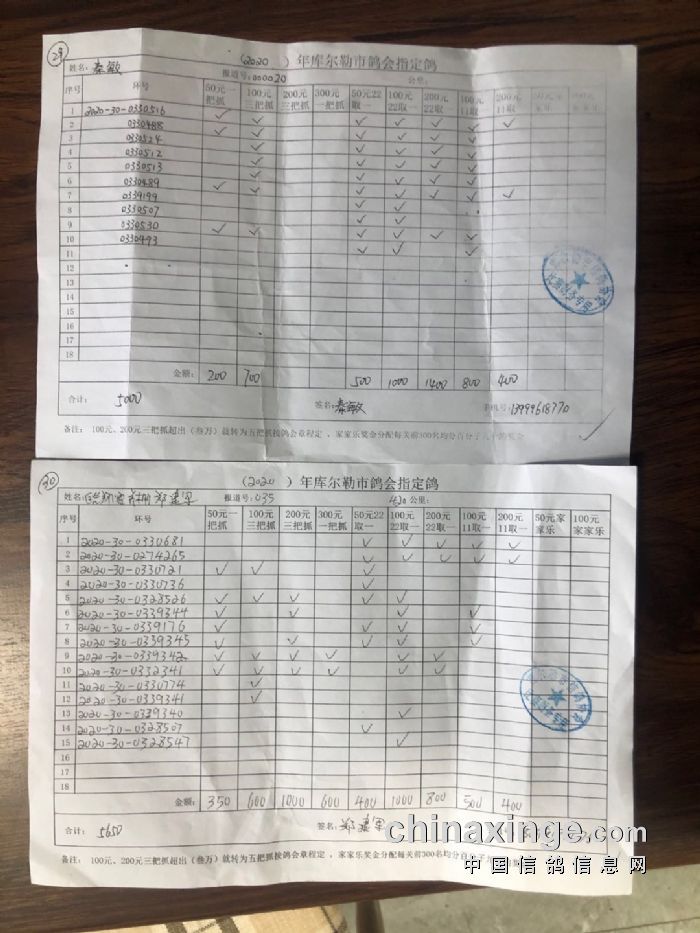 29
(2020 ) 年库尔勒市鸽会指定鸽
姓名: 秦敏 报道号: 000020 公里:
序号 环号 50元一把抓 100元三把抓 200元三把抓 300元一把抓 50元22取一 100元22取一 200元22取一 100元11取一 200元11取一
1 2020-30-0330516 ✓ ✓ ✓ ✓ ✓ ✓
2 0330488
3 0330524
4 0330512
5 0330513
6 0330489
7 0339199
8 0330507
9 0330530
10 0330493
11
12
13
14
15
16
17
18
金额: 200 700 500 1000 1400 800 400
合计: 5000 签名: 秦敏 手机号: 13999618770
备注: 100元、200元三把抓超出(叁万)就转为五把抓按鸽会章程定,家家乐奖金分配每关前300名均分
30
(2020 ) 年库尔勒市鸽会指定鸽
郑建军 报道号: 035 420公里:
序号 环号 50元一把抓 100元三把抓 200元三把抓 300元一把抓 50元22取一 100元22取一 200元22取一 100元11取一 200元11取一 50元家家乐 100元家家乐
1 2020-30-0330681
2 2020-30-0274265
3 2020-30-0330721
4 2020-30-0330736
5 2020-30-0328526
6 2020-30-0339344
7 2020-30-0339176
8 2020-30-0339345
9 2020-30-0339342
10 2020-30-0332341
11 2020-30-0330774
12 2020-30-0339341
13 2020-30-0339340
14 2020-30-0328507
15 2020-30-0328547
18
金额: 350 600 1000 600 400 1000 800 500 400
合计: 5650 签名: 郑建军
备注: 100元、200元三把抓超出(叁万)就转为五把抓按鸽会章程定,家家乐奖金分配每关前300名均分
chinaxinge.com
中国信鸽信息网